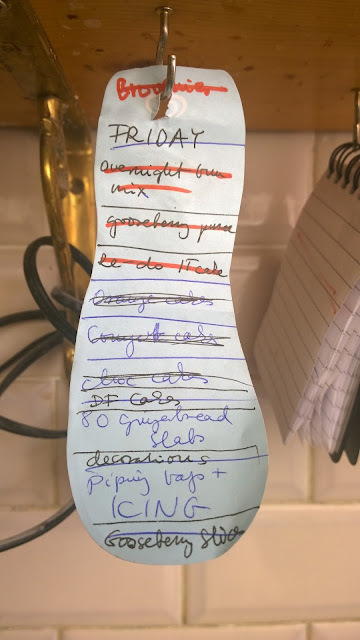 Brownies
FRIDAY
overnight bun
mix
gooseberry puree
Re-do IT cake
Orange cakes
Courgette cakes
choc cakes
DF cakes
80 gingerbread
slabs
decorations
Piping bags +
ICING
Gooseberry Slice